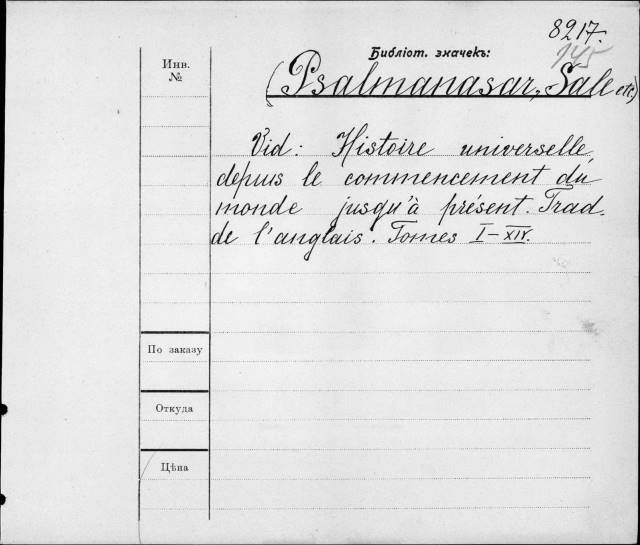 8217.
145
Библіот. значекъ:
Инв.
№
(Psalmanasar, Sale etc)
Vid: Histoire universelle,
depuis le commencement du
monde jusqu'à présent. Trad.
de l'anglais. Tomes I–XIV.
По заказу
Откуда
Цѣна